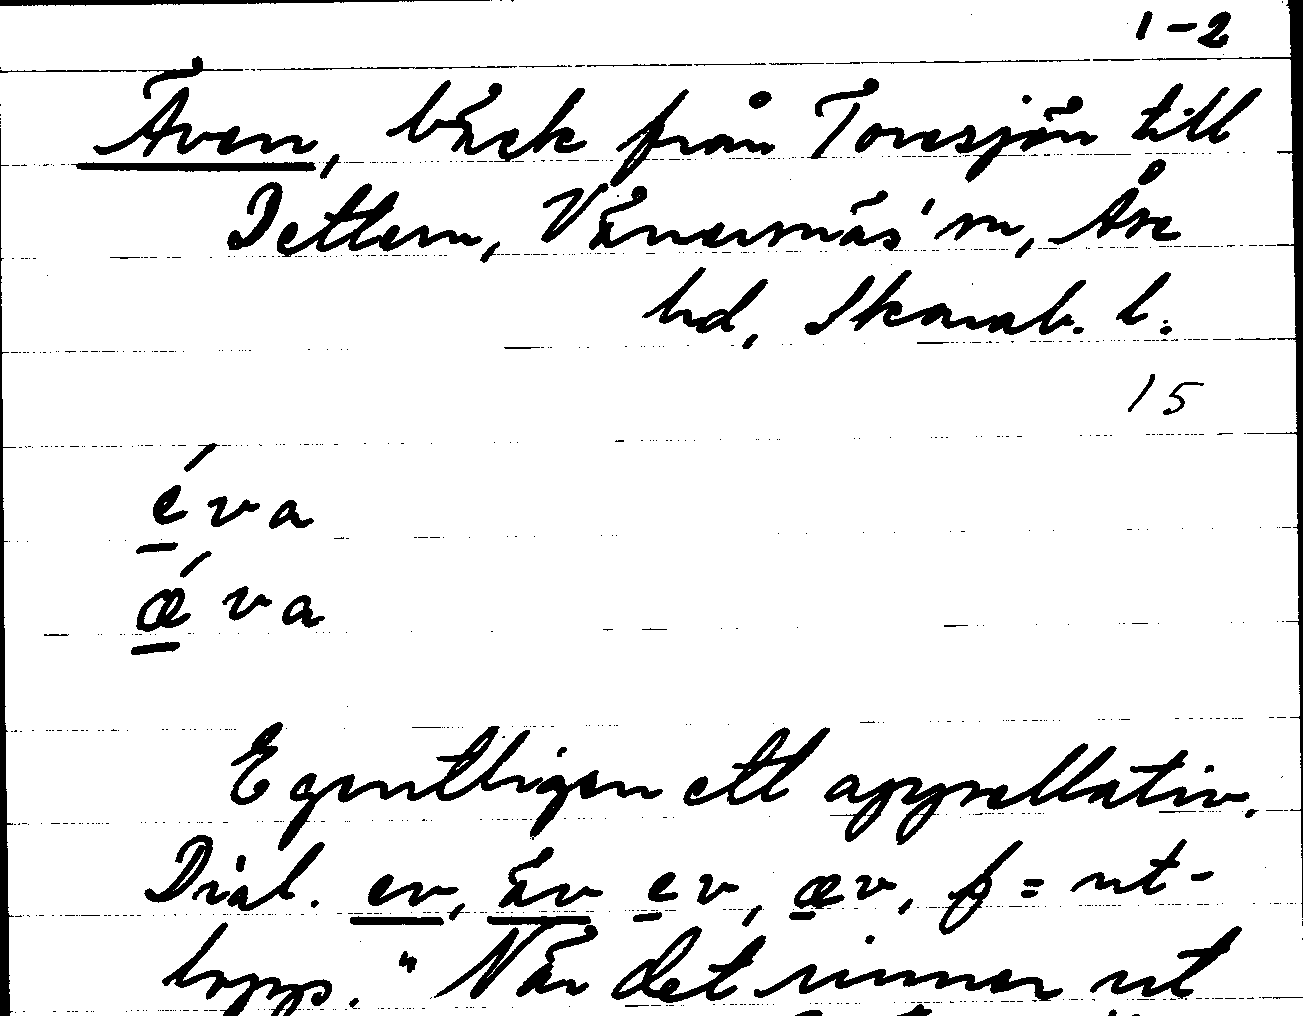 1-2
Även, bäck från Toresjön till
Dettern, Vänersnäs' sn, Åse
hd, Skarab. l.
15
éva
ǽva
Egentligen ett appellativ.
Dial. ev, äv ev, æv, f = ut-
lopp. "När det rinner ut